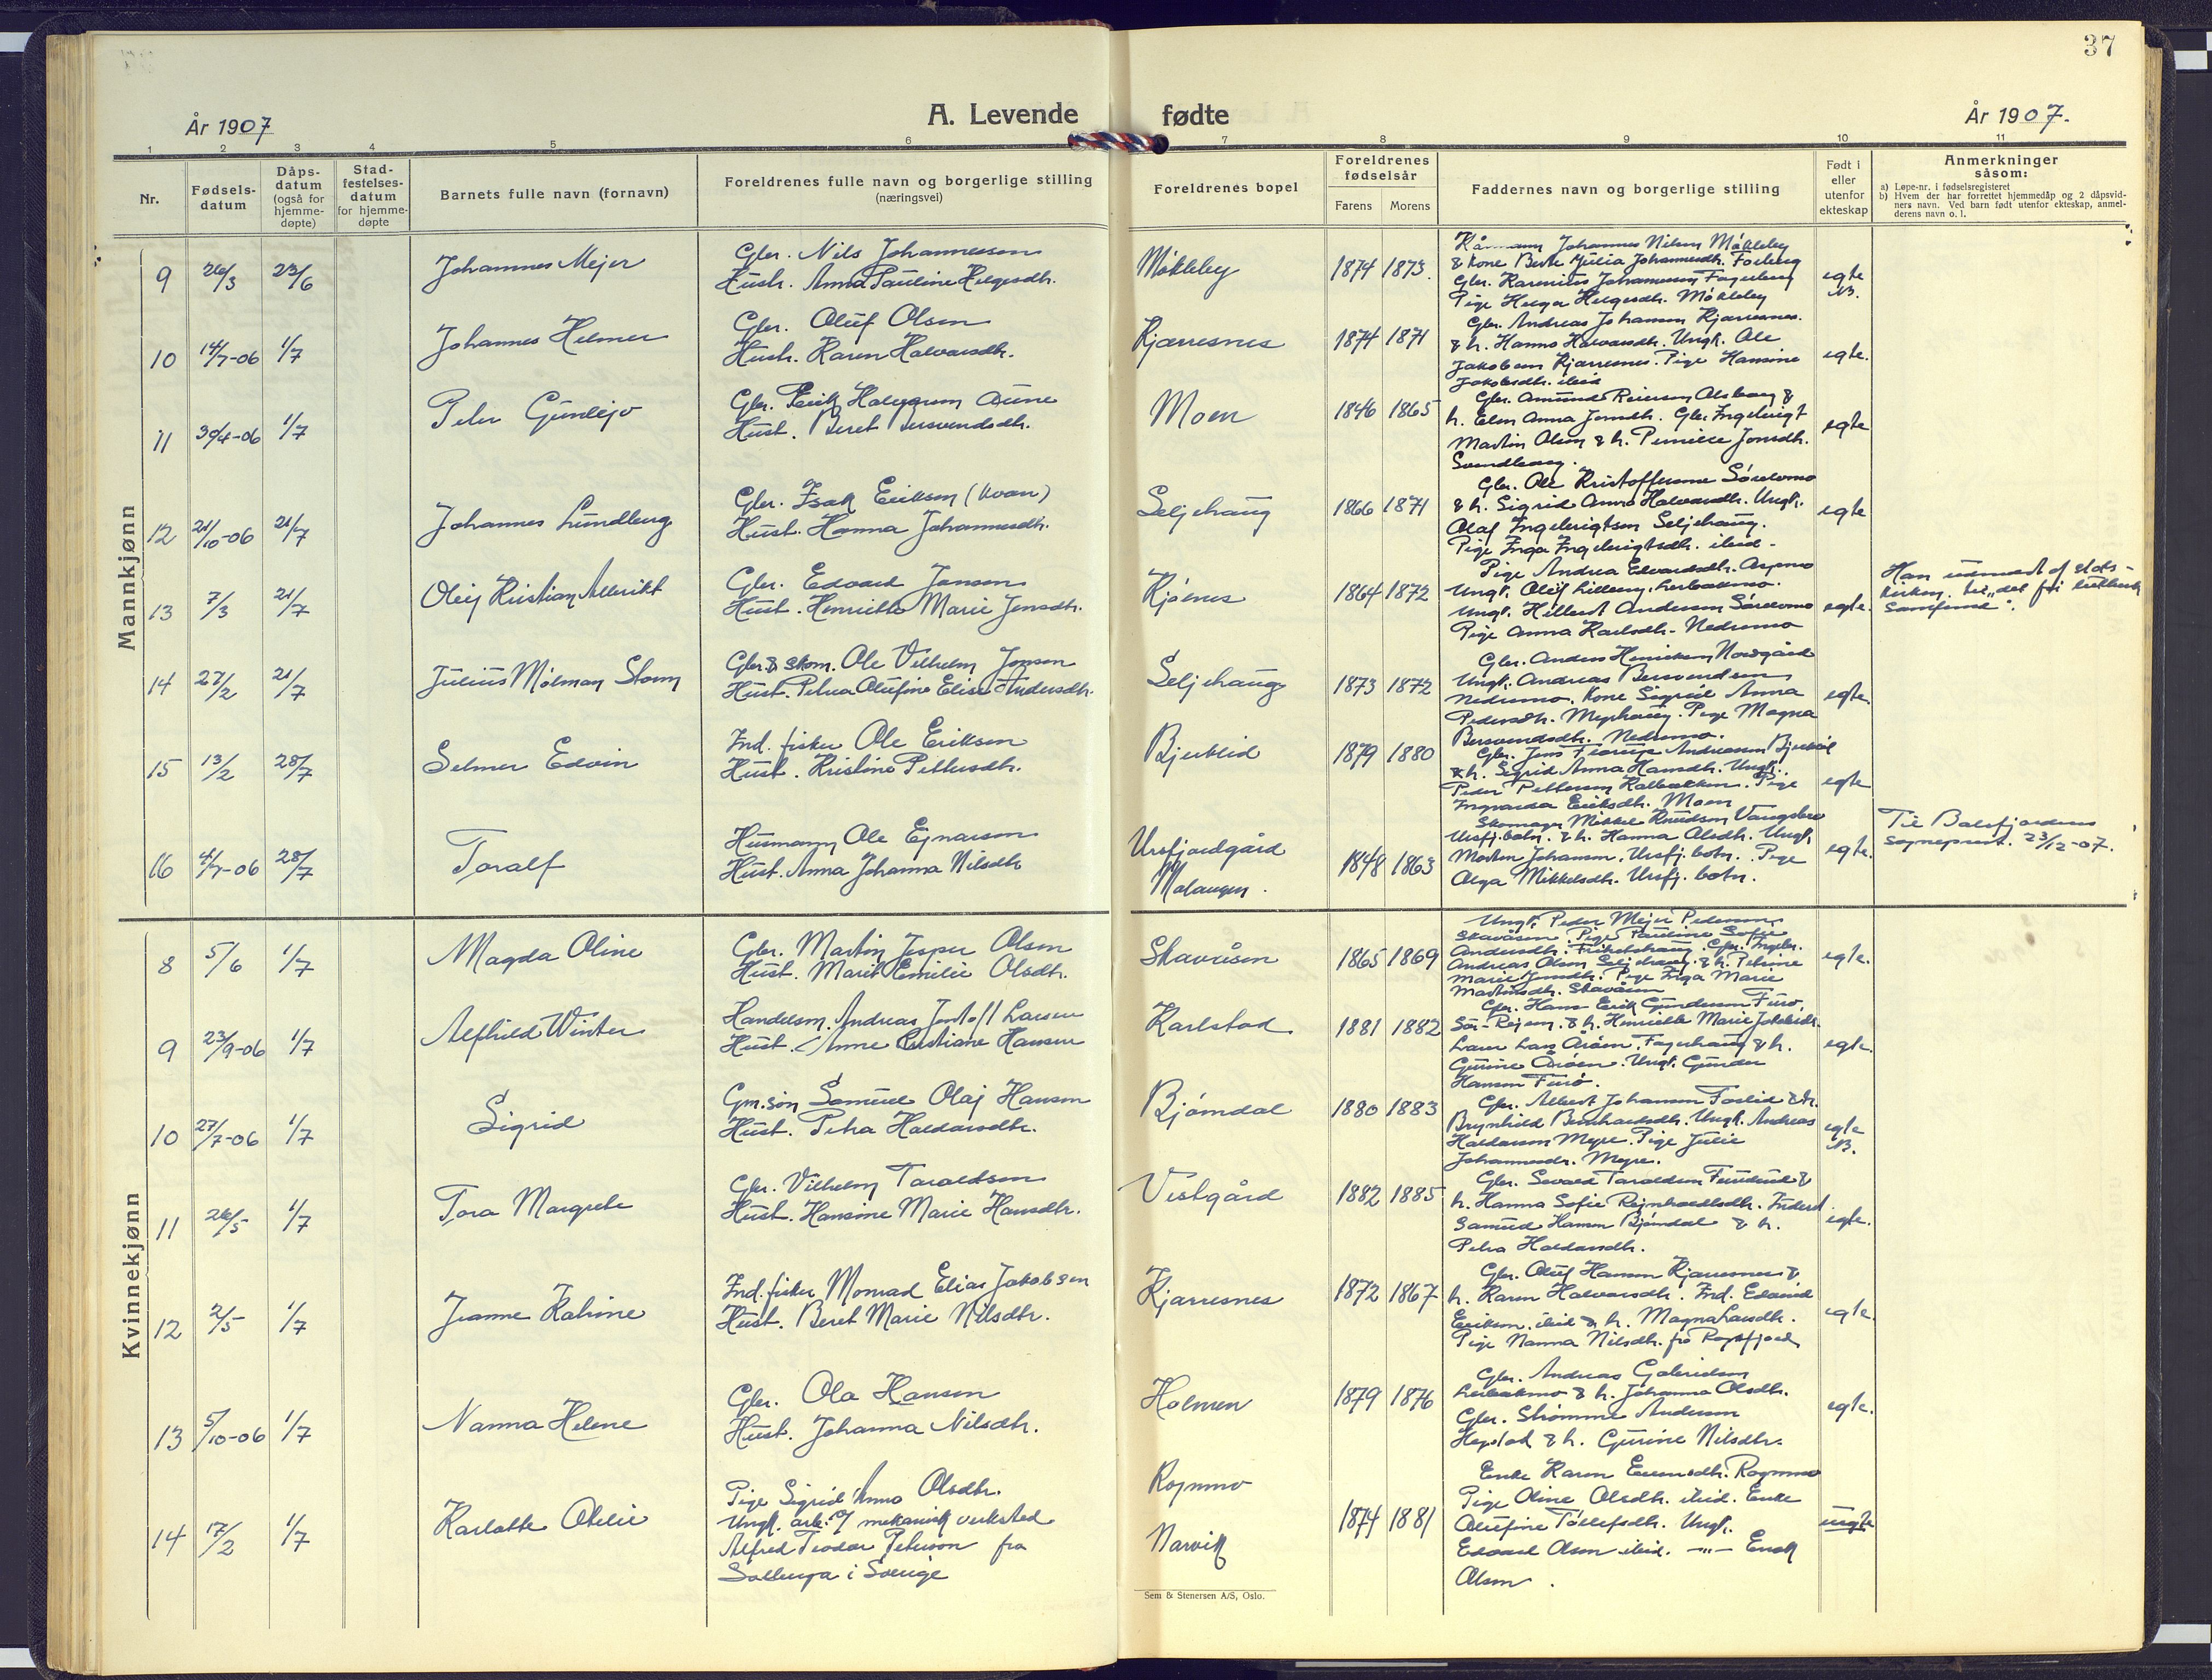 37
År 1907
A. Levende fødte
År 1907.
1 2 3 4 5 6 7 8 9 10 11
Nr.
Fødsels-
datum
Dåps-
datum
(også for
hjemme-
døpte)
Stad-
festelses-
datum
for hjemme-
døpte
Barnets fulle navn (fornavn)
Foreldrenes fulle navn og borgerlige stilling
(næringsvei)
Foreldrenes bopel
Foreldrenes
fødselsår
Farens
Morens
Faddernes navn og borgerlige stilling
Født i
eller
utenfor
ekteskap
Anmerkninger
såsom:
a) Løpe-nr. i fødselsregisteret
b) Hvem der har forrettet hjemmedåp og 2 dåpsvid-
ners navn. Ved barn født utenfor ekteskap, anmel-
derens navn o. l.
Mannkjønn
9 26/3 23/6
Johannes Mejer
Gbr. Nils Johannessen
Hustr. Anna Pauline Helgesdtr.
Møkleby
1874 1873.
Kårmann Johannes Nilsen Møkleby
& kone Berte Julia Johannesdtr. Fosberg
Gbr. Karenius Johannesen Fagerberg
Pige Helga Helgesdtr. Møkleby
egte
10 14/7-06 1/7
Johannes Helmer
Gbr. Oluf Olsen
Hustr. Karen Halvarsdtr.
Kjærresnes
1874 1871
Gbr. Andreas Johansen Kjærresnes.
& h. Hanna Halvarsdtr. Ungk. Ole
Jakobsen Kjærresnes. Pige Hansine
Jakobsdtr. ibid
egte.
11 30/4-06 1/7
Peder Gunlejv
Gbr. Peter Halvorsen Aune
Hust. Beret Bersvendsdtr.
Moen
1846 1865
Gbr. Amund Reiersen Alsborg &
h. Elen Anna Jonsdtr. Gbr. Ingebrigt
Martin Olsen & h. Pernille Jonsdtr.
Sundberg.
egte
12 21/10-06 21/7
Johannes Lundberg
Gbr. Isak Eriksen (kvæn)
Hust. Hanna Johannesdtr.
Seljehaug
1866 1871
Gbr. Ole Kristoffersen Sørelvmo
& h. Sigrid Anna Halvarsdtr. Ungk.
Olaf Ingebrigtsen Seljehaug.
Pige Inga Ingebrigtsdtr. ibid.
egte
13 7/3 21/7
Oleij Kristian Albrikt
Gbr. Edvard Jensen
Hust. Henriette Marie Jensdtr.
Kjøsnes
1864 1872
Pige Andrea Edvardsdtr. Aspmo
Ungk. Oluf Lilleng, Lerbakmo.
Ungk. Hilbert Andersen Sørelvmo
Pige Anna Karlsdtr. Nedremo
egte.
Han udmeldt af stats-
kirken til „det fri luthersk
samfund“.
14 27/2 21/7
Julius Mølman Storm
Gbr. & skom. Ole Vilhelm Jonsen
Hust. Petra Olufine Elise Andersdtr.
Seljehaug
1873 1872
Gbr. Anders Henriksen Nordgård
Ungk. Andreas Bersvendsen
Nedremo. Kone Sigrid Anna
Pedersdtr. Myrhaug. Pige Magna
Bersvendsdtr. Nedremo.
egte
15 13/2 28/7
Selmer Edvin
Ind. fisker Ole Eriksen
Hust. Kristine Pettersdtr.
Bjerklid
1879 1880
Gbr. Jens Andreassen Bjerklid
& h. Sigrid Anna Hansdtr. Ungk.
Peder Pettersen Kalbakken. Pige
Ingvarda Eriksdtr. Moen
egte
16 4/7-06 28/7
Toralf
Husmann Ole Ejnarsen
Hust. Anna Johanna Nilsdtr
Ursfjordgård
Malangen.
1848 1863
Skomager Mikkel Knudsen
Ursfj.botn. & h. Hanna Olsdtr. Ungk.
Morten Johansen, Ursfj.botn. Pige
Olga Mikkelsdtr. Ursfj. botn.
egte.
Til Balsfjordens
sogneprest. 23/12-07.
Kvinnekjønn
8 5/6 1/7
Magda Oline
Gbr. Martin Jesper Olsen
Hust. Marit Emilie Olsdtr.
Skavåsen
1865 1869
Ungk. Peder Mejer Pedersen
Skavåsen. Pige Pauline Sofie
Andersdtr. Gbr. Ingebr.
Andreas Olsen Seljehaug. & h. Petrine
Marie Jonsdtr. Pige Inga Marie
Martinsdtr. Skavåsen
egte.
9 23/9-06 1/7
Alfhild Winter
Handelsm. Andreas Jentoft Larsen
Hust. Anne Kristiane Hansen
Karlstad
1881 1882
Gbr. Hans Erik Gundersen Furø,
Sør-Rejsen. & h. Henriette Marie Jakobsdtr.
Lars Arøen, Fagerhaug & h.
Gurine Arøen. Ungk. Gunder
Hansen Furø.
egte.
10 27/7-06 1/7
Sigrid
Gm.søn Samuel Olaj Hansen
Hust. Petra Haldorsdtr.
Bjørndal
1880 1883
Gbr. Albert Johansen Foslid & h.
Brynhild Bernhardsdtr. Ungk. Andreas
Haldorsen Myre. Pige Julie
Johannesdtr. Myre.
egte
11 26/5 1/7
Tora Margrete
Gbr. Vilhelm Taraldsen
Hust. Hansine Marie Hansdtr.
Vestgård
1882 1885
Gbr. Sevald Taraldsen Furulund &
h. Hanna Sofie Rejnholdtsdtr. Inderst
Samuel Hansen Bjørndal & h.
Petra Haldorsdtr.
egte.
12 2/5 1/7
Jeanne Katrine
Ind. fisker Monrad Elias Jakobsen
Hust. Beret Marie Nilsdtr.
Kjærresnes
1872 1867
Gbr. Oluf Hansen Kjærresnes &
h. Karen Halvarsdtr. Ind. Edvard
Eriksen, ibid & h. Magna Larsdtr.
Pige Nanna Nilsdtr. fra
egte
13 5/10-06 1/7
Nanna Helene
Gbr. Ola Hansen
Hust. Johanna Nilsdtr.
Holmen
1879 1876
Gbr. Andreas Gabrielsen
Lerbakmo & h. Johanna Olsdtr.
Gbr. Strømme Andersen
Hegstad & h. Gurine Nilsdtr.
egte.
14 17/2 1/7
Karlotte Otelie
Pige Sigrid Anna Olsdtr.
Ungk. arb. v/ mekanisk verksted
Alfred Teodor Peterson fra
i Sverige
Rognmo
Narvik
1874 1881
Enke Karen Evensdtr. Rognmo
Pige Oline Olsdtr. ibid. Enke
Olufine Tollefsdtr. Ungk.
Edvard Olsen ibid. —"— Enok
Olsen.
uegte
Sem & Stenersen A/S, Oslo.